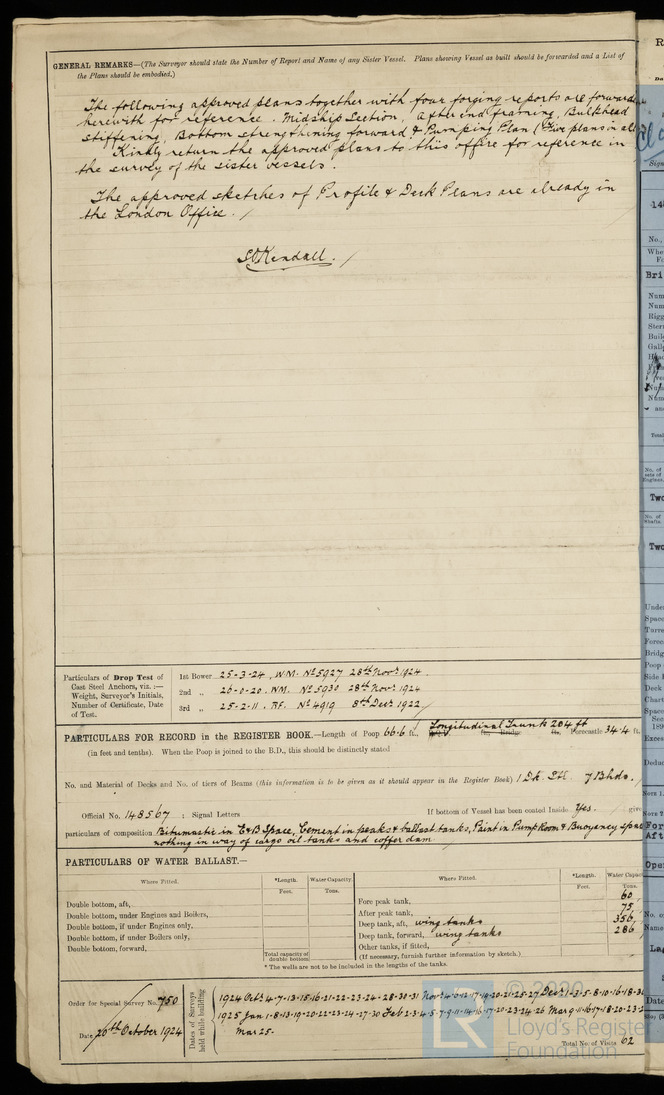 GENERAL REMARKS—(The Surveyor should state the Number of Report and Name of any Sister Vessel. Plans showing Vessel as built should be forwarded and a List of
the Plans should be embodied.)
The following approved plans together with four forging reports are forwarded
herewith for reference. Midship Section, After end framing, Bulkhead
stiffening, Bottom strengthening forward & Pumping Plan (Five plans in all
Kindly return the approved plans to this office for reference in
the survey of the sister vessels.
The approved sketches of Profile & Deck Plans are already in
the London Office. /
Kendall. /
Particulars of Drop Test of
Cast Steel Anchors, viz. :—
Weight, Surveyor's Initials,
Number of Certificate, Date
of Test.
1st Bower 25-3-24, W.M. No 5927 28th Novr 1924.
2nd „ 26-0-20. W.M. No 5930 28th Novr 1924
3rd „ 25-2-11. R.F. No 4919 8th Decr 1922/
Longitudinal Trunk 204 ft
PARTICULARS FOR RECORD in the REGISTER BOOK.—Length of Poop 66.6 ft., Bridge ft., Forecastle 34.4 ft.
(in feet and tenths). When the Poop is joined to the B.D., this should be distinctly stated
No. and Material of Decks and No. of tiers of Beams (this information is to be given as it should appear in the Register Book) 1 Dk. Stl. 7 Bhds. /
Official No. 148567 ; Signal Letters If bottom of Vessel has been coated Inside Yes. / give
particulars of composition Bitumastic in E & B Space, Cement in peaks & ballast tanks, Paint in Pump Room & Buoyancy space
nothing in way of cargo oil tanks and coffer dam
PARTICULARS OF WATER BALLAST.—
Where Fitted. *Length. Water Capacity. Where Fitted. *Length. Water Capac
Feet. Tons. Feet. Tons.
Double bottom, aft, Fore peak tank, 60
Double bottom, under Engines and Boilers, After peak tank, 75
Double bottom, if under Engines only, Deep tank, aft, wing tanks 356
Double bottom, if under Boilers only, Deep tank, forward, wing tanks 286
Double bottom, forward, Other tanks, if fitted,
Total capacity of double bottom (If necessary, furnish further information by sketch.)
* The wells are not to be included in the lengths of the tanks.
Order for Special Survey No. 750
Date 20th October 1924
Dates of Surveys held while building
1924 Oct. 4-7-13-15-16-21-22-23-24-28-30-31 Novr
1925 Jan 1-8-13-19-20-22-23-24-27-30 Feb
Mar 25-
Total No. of Visits 62
© 2020
LR
Lloyd's Register
Foundation